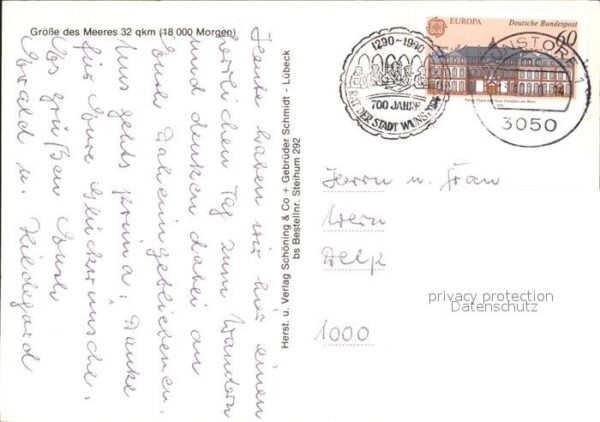 Größe des Meeres 32 qkm (18 000 Morgen)
Heute haben wir hier einen
herrlichen Tag zum Wandern
und denken dabei an
Euch Daheimgebliebenen.
Uns gehts prima. Danke
für Eure Glückwünsche.
Es grüßen Euch
Ewald u. Hildegard
Herst. u. Verlag Schöning & Co + Gebrüder Schmidt - Lübeck
bs Bestellnr. Steihum 292
EUROPA Deutsche Bundespost
60
1290-1990
700 JAHRE
RAT DER STADT WUNSTORF
WUNSTORF 1
3050
Herrn u. Frau
1000
privacy protection
Datenschutz